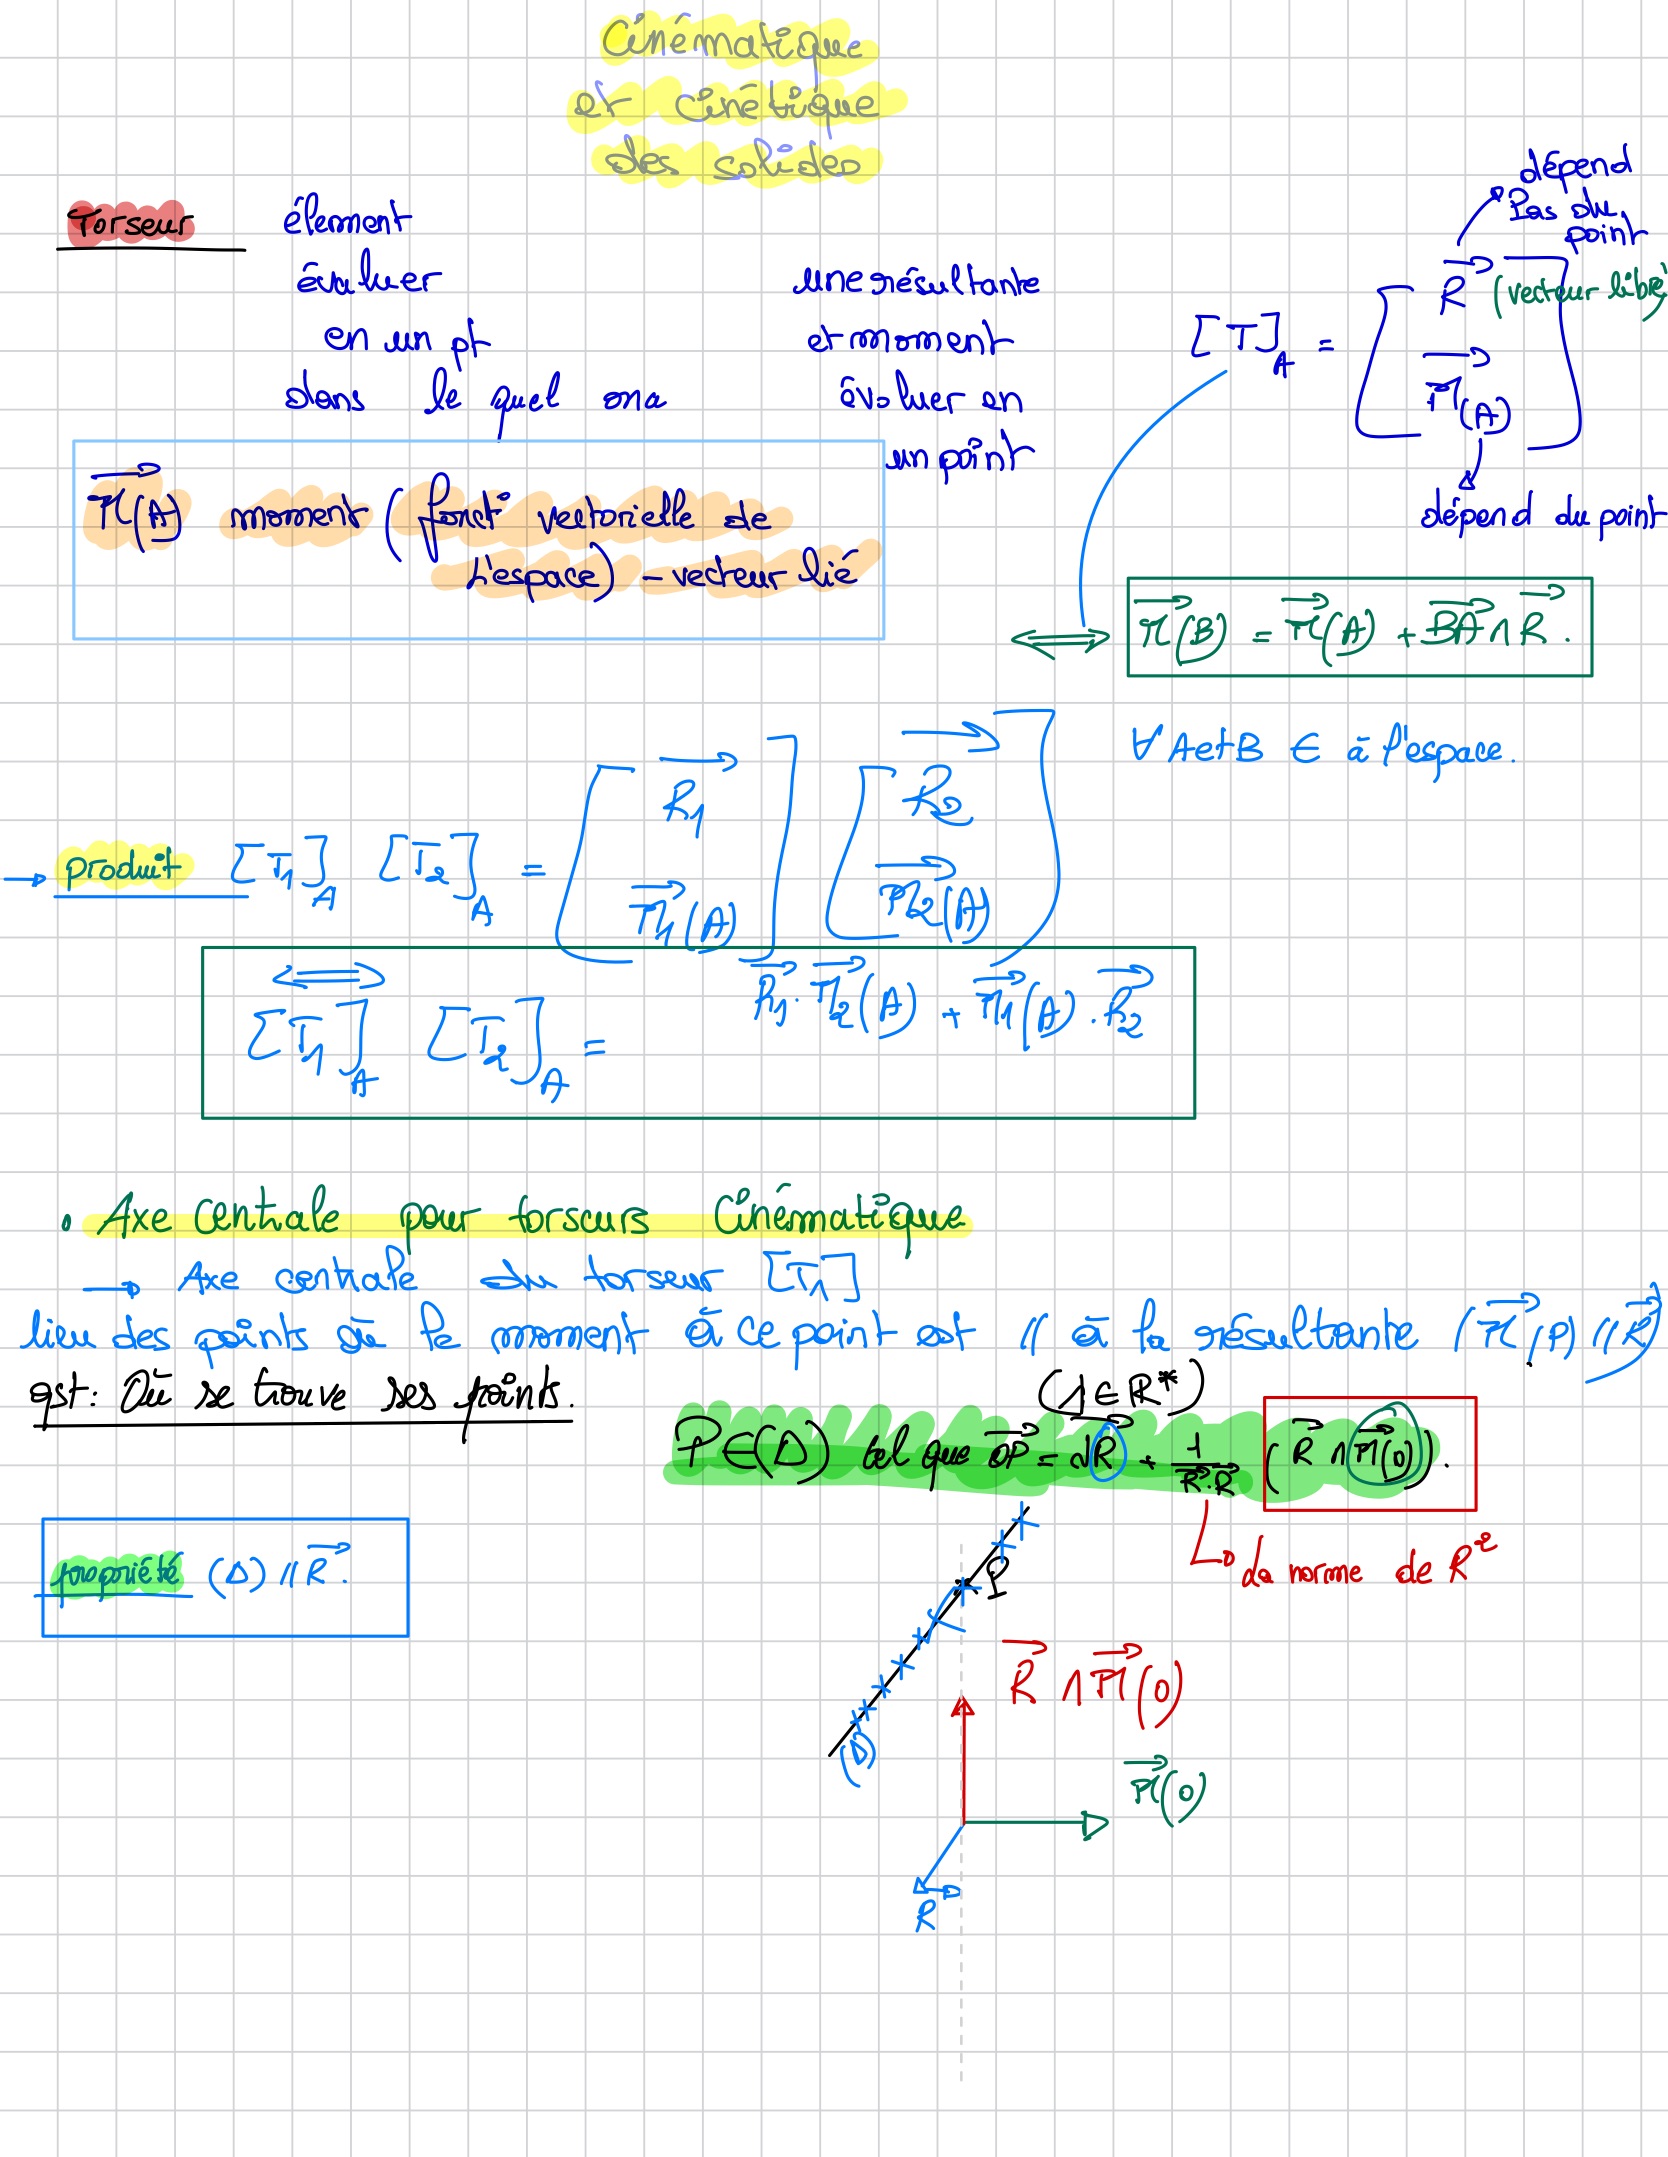 Cinématique
et cinétique
des solides
Torseur élement
évaluer
en un pt
dans le quel ona
une résultante
et moment
évoluer en
un point
dépend
Pas du
point
[T]_A = [ R⃗ (vecteur libre)
M⃗(A) ]
dépend du point
M⃗(A) moment (fonct° vectorielle de
L'espace) – vecteur lié
⟺ M⃗(B) = M⃗(A) + BA⃗ ∧ R⃗ .
∀ A et B ∈ à l'espace.
→ produit [T1]_A [T2]_A = [ R1⃗ M1⃗(A) ] [ R2⃗ M2⃗(A) ]
⟺
[T1]_A [T2]_A = R1⃗ . M2⃗(A) + M1⃗(A) . R2⃗
• Axe Centrale pour torseurs Cinématique
→ Axe centrale du torseur [T1]
lieu des points où le moment à ce point est // à la résultante (M⃗(P) // R⃗)
qst: Où se trouve ses points.
(λ ∈ R*)
P ∈ (Δ) tel que OP⃗ = λR⃗ + 1/(R⃗.R⃗) (R⃗ ∧ M⃗(0)).
↳ la norme de R²
propriété (Δ) // R⃗.
P
(Δ)
R⃗ ∧ M⃗(0)
M⃗(0)
R⃗